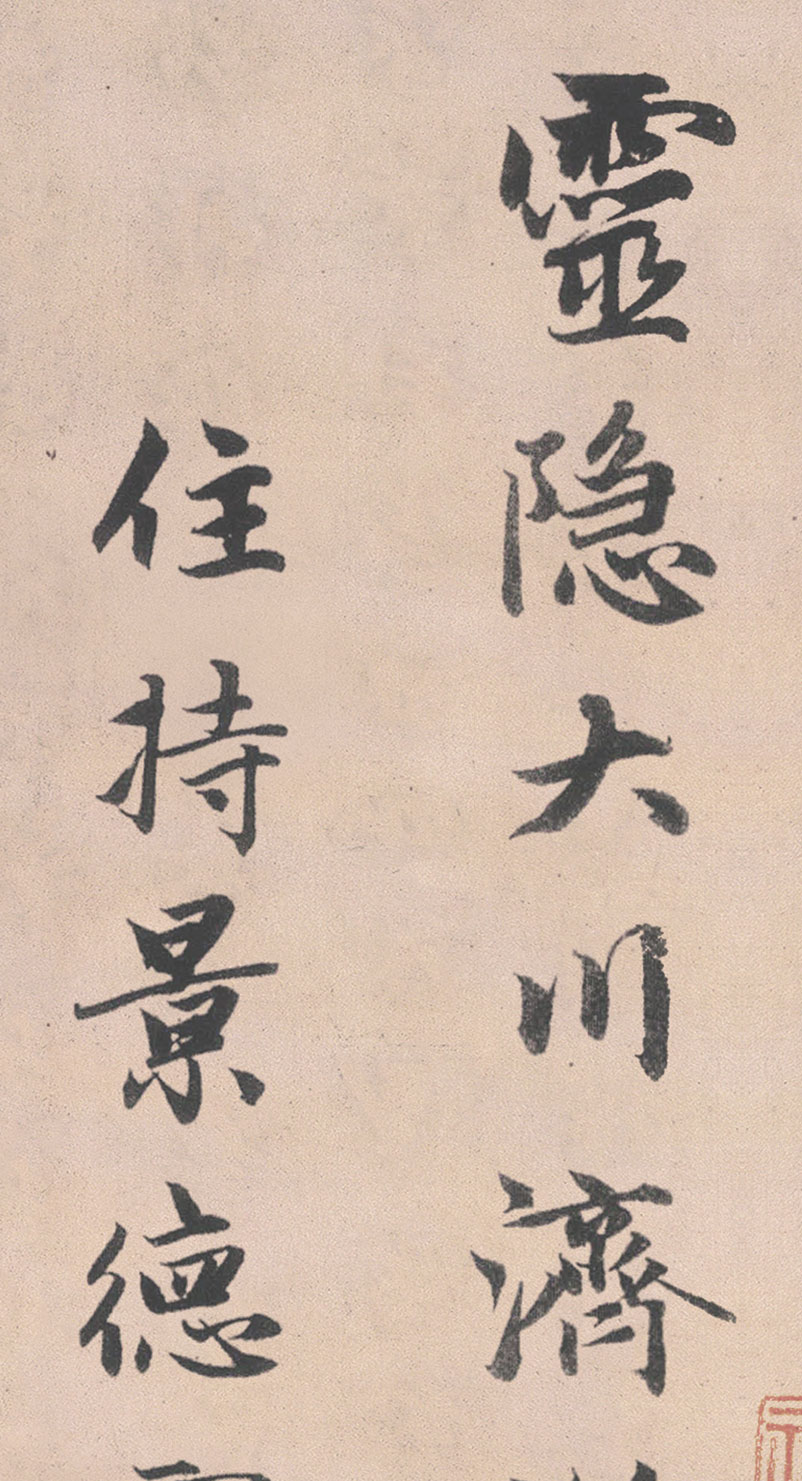 靈隐大川濟
住持景德